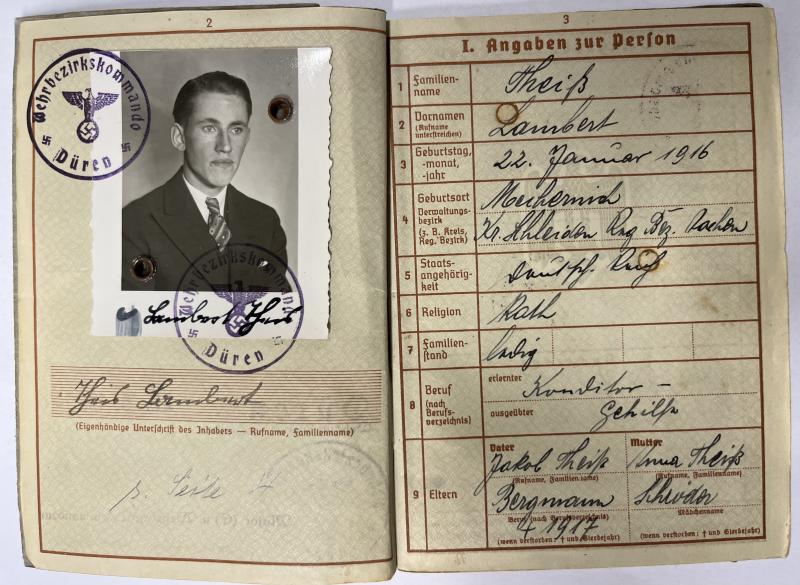 2
Wehrbezirkskommando
Düren
Lambert Theis
Wehrbezirkskommando
Düren
Theis Lambert
(Eigenhändige Unterschrift des Inhabers — Rufname, Familienname)
s. Seite
3
I. Angaben zur Person
1 Familienname Theiß
2 Vornamen (Rufname unterstreichen) Lambert
3 Geburtstag, -monat, -jahr 22. Januar 1916
4 Geburtsort Mechernich
Verwaltungsbezirk (z. B. Kreis, Reg. Bezirk) Kr. Schleiden Rng Bez. Aachen
5 Staatsangehörigkeit Deutsch. Reich
6 Religion Kath
7 Familienstand ledig
8 Beruf (nach Berufsverzeichnis) erlernter Konditor –
ausgeübter Gehilfe
9 Eltern
Vater Mutter
Jakob Theiß Anna Theiß
(Rufname, Familienname) (Rufname, Familienname)
Bergmann Schröder
Beruf (nach Berufsverzeichnis) Mädchenname
1917
(wenn verstorben: † und Sterbejahr) (wenn verstorben: † und Sterbejahr)